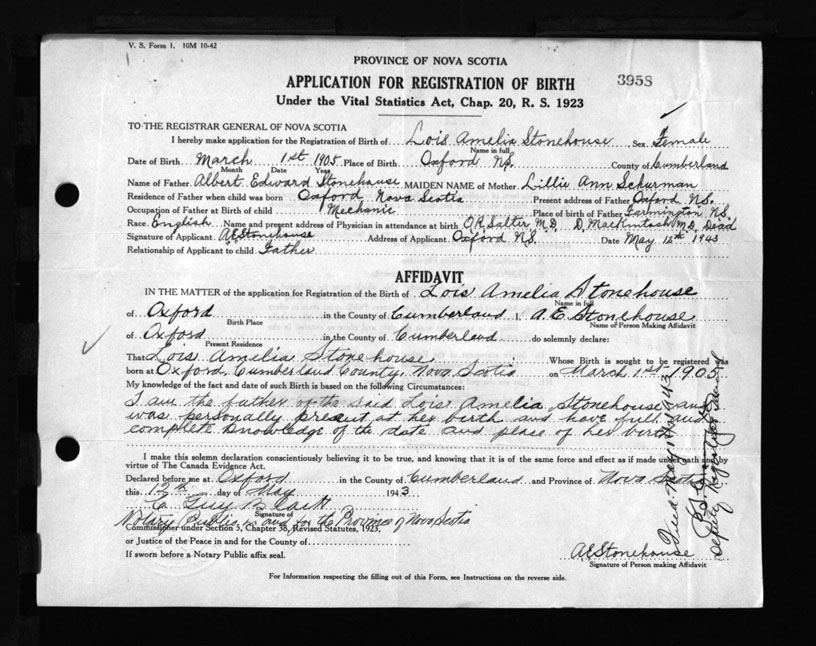 V. S. Form 1. 10M 10-42
PROVINCE OF NOVA SCOTIA
APPLICATION FOR REGISTRATION OF BIRTH
3958
Under the Vital Statistics Act, Chap. 20, R. S. 1923
TO THE REGISTRAR GENERAL OF NOVA SCOTIA
I hereby make application for the Registration of Birth of Lois Amelia Stonehouse Sex Female
Name in full
Date of Birth March 1st 1905 Place of Birth Oxford N.S. County of Cumberland
Month Date Year
Name of Father Albert Edward Stonehouse MAIDEN NAME of Mother Lillie Ann Schurman
Residence of Father when child was born Oxford Nova Scotia Present address of Father Oxford N.S.
Occupation of Father at Birth of child Mechanic Place of birth of Father Farmington N.S.
Race English Name and present address of Physician in attendance at birth O R Salter M.D. D. MacKintosh M.D. Dead
Signature of Applicant A E Stonehouse Address of Applicant Oxford N.S. Date May 12th 1943
Relationship of Applicant to child Father
AFFIDAVIT
IN THE MATTER of the application for Registration of the Birth of Lois Amelia Stonehouse
Name in full
of Oxford in the County of Cumberland I, A. E Stonehouse
Birth Place Name of Person Making Affidavit
of Oxford in the County of Cumberland do solemnly declare:
Present Residence
That Lois Amelia Stonehouse Whose Birth is sought to be registered was
born at Oxford, Cumberland County, Nova Scotia on March 1st 1905
My knowledge of the fact and date of such Birth is based on the following Circumstances:
I am the father of the said Lois Amelia Stonehouse and
was personally present at her birth and have full and
complete knowledge of the date and place of her birth
I make this solemn declaration conscientiously believing it to be true, and knowing that it is of the same force and effect as if made under oath and by
virtue of The Canada Evidence Act.
Declared before me at Oxford in the County of Cumberland and Province of Nova Scotia
this 12th day of May 1943
C. Guy Black
Signature of
Notary Public in and for the Province of Nova Scotia
Commissioner under Section 5, Chapter 38, Revised Statutes, 1923,
or Justice of the Peace in and for the County of
A E Stonehouse
If sworn before a Notary Public affix seal.
Signature of Person making Affidavit
For Information respecting the filling out of this Form, see Instructions on the reverse side.
Deputy Registrar General